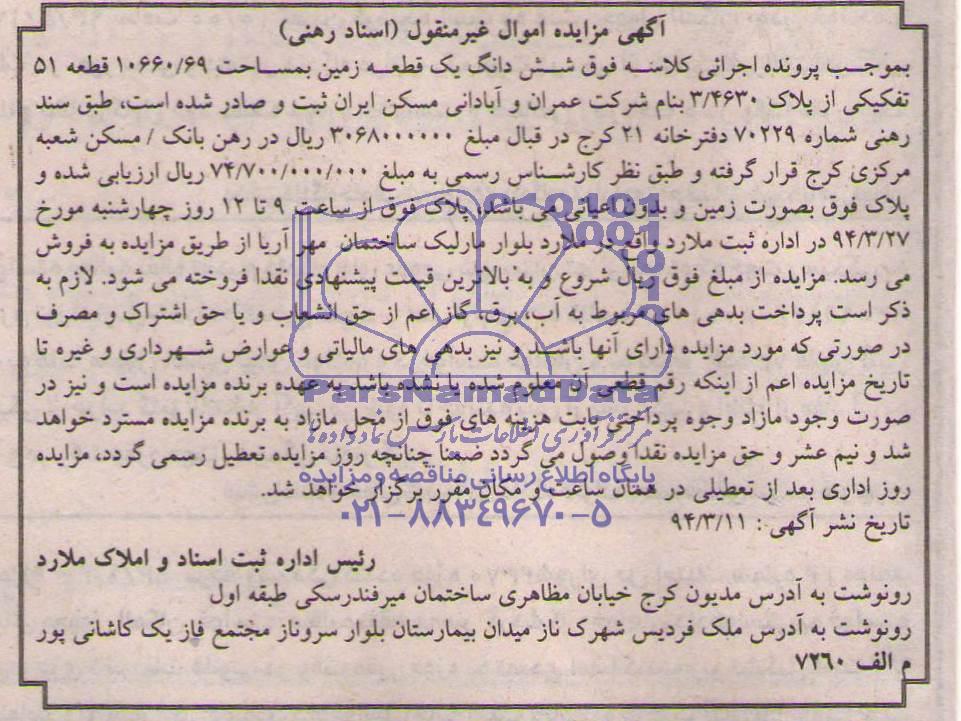 آگهی مزایده اموال غیرمنقول (اسناد رهنی)
بموجب پرونده اجرائی کلاسه فوق شش دانگ یک قطعه زمین بمساحت ۱۰۶۶۰/۶۹ قطعه ۵۱
تفکیکی از پلاک ۳/۴۶۳۰ بنام شرکت عمران و آبادانی مسکن ایران ثبت و صادر شده است، طبق سند
رهنی شماره ۷۰۲۲۹ دفترخانه ۲۱ کرج در قبال مبلغ ۳۰۶۸۰۰۰۰۰۰ ریال در رهن بانک / مسکن شعبه
مرکزی کرج قرار گرفته و طبق نظر کارشناس رسمی به مبلغ ۷۴/۷۰۰/۰۰۰/۰۰۰ ریال ارزیابی شده و
پلاک فوق بصورت زمین و بدون اعیانی می باشد، پلاک فوق از ساعت ۹ تا ۱۲ روز چهارشنبه مورخ
۹۴/۳/۲۷ در اداره ثبت ملارد واقع در ملارد بلوار مارلیک ساختمان مهر آریا از طریق مزایده به فروش
می رسد. مزایده از مبلغ فوق ریال شروع و به بالاترین قیمت پیشنهادی نقدا فروخته می شود. لازم به
ذکر است پرداخت بدهی های مربوط به آب، برق، گاز اعم از حق انشعاب و یا حق اشتراک و مصرف
در صورتی که مورد مزایده دارای آنها باشد و نیز بدهی های مالیاتی و عوارض شهرداری و غیره تا
تاریخ مزایده اعم از اینکه رقم قطعی آن معلوم شده یا نشده باشد به عهده برنده مزایده است و نیز در
صورت وجود مازاد وجوه پرداختی بابت هزینه های فوق از محل مازاد به برنده مزایده مسترد خواهد
شد و نیم عشر و حق مزایده نقدا وصول می گردد ضمنا چنانچه روز مزایده تعطیل رسمی گردد، مزایده
روز اداری بعد از تعطیلی در همان ساعت و مکان مقرر برگزار خواهد شد.
تاریخ نشر آگهی : ۹۴/۳/۱۱
رئیس اداره ثبت اسناد و املاک ملارد
رونوشت به آدرس مدیون کرج خیابان مظاهری ساختمان میرفندرسکی طبقه اول
رونوشت به آدرس ملک فردیس شهرک ناز میدان بیمارستان بلوار سروناز مجتمع فاز یک کاشانی پور
م الف ۷۲۶۰
ParsNamadData
مرکز فرآوری اطلاعات پارس نماد داده ها
پایگاه اطلاع رسانی مناقصه و مزایده
۰۲۱-۸۸۳۴۹۶۷۰-۵